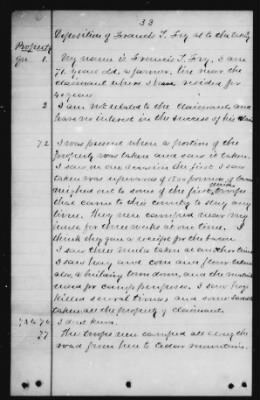 33
Deposition of Francis T. Fry as to the loyalty
Property
Qn. 1. My name is Francis T. Fry, I am
71 years old, a farmer, live near the
claimant where I have resided for
40 years.
2 I am not related to the claimant, and
have no interest in the success of his claim
72 I was present when a portion of the
property was taken and saw it taken.
I saw on one occasion the first I saw
taken was upwards of 1500 pounds of bacon
weighed out to some of the first troops
that came to this country to stay any
time. They were camped near my
house for three weeks at one time. I
think they gave a receipt for the bacon
I saw them taken at another time
I saw hay and corn and flour taken
also, a building torn down, and the material
used for camp purposes. I saw hogs
killed several times and some
taken all the property of claimant.
I dont know.
77 The troops were camped all along the
road from here to Cedar mountain.